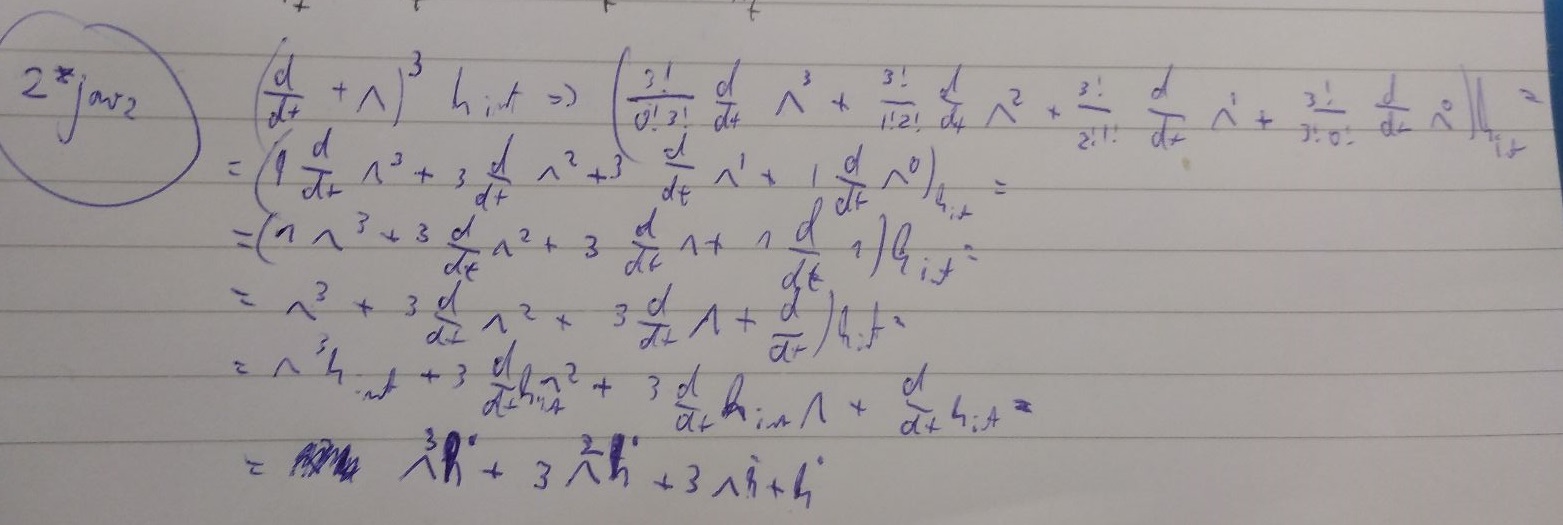 2 * jav2
(d/dt + λ)^3 h_int => (3!/0!3! d/dt λ^3 + 3!/1!2! d/dt λ^2 + 3!/2!1! d/dt λ^1 + 3!/3!0! d/dt λ^0) h_int =
= (1 d/dt λ^3 + 3 d/dt λ^2 + 3 d/dt λ^1 + 1 d/dt λ^0) h_int =
= (1 λ^3 + 3 d/dt λ^2 + 3 d/dt λ + 1 d/dt 1) h_int =
= λ^3 + 3 d/dt λ^2 + 3 d/dt λ + d/dt) h_int =
= λ^3 h_int + 3 d/dt h_int λ^2 + 3 d/dt h_int λ + d/dt h_int =
= λ^3 ḣ + 3 λ^2 ḣ + 3 λ ḣ + ḣ